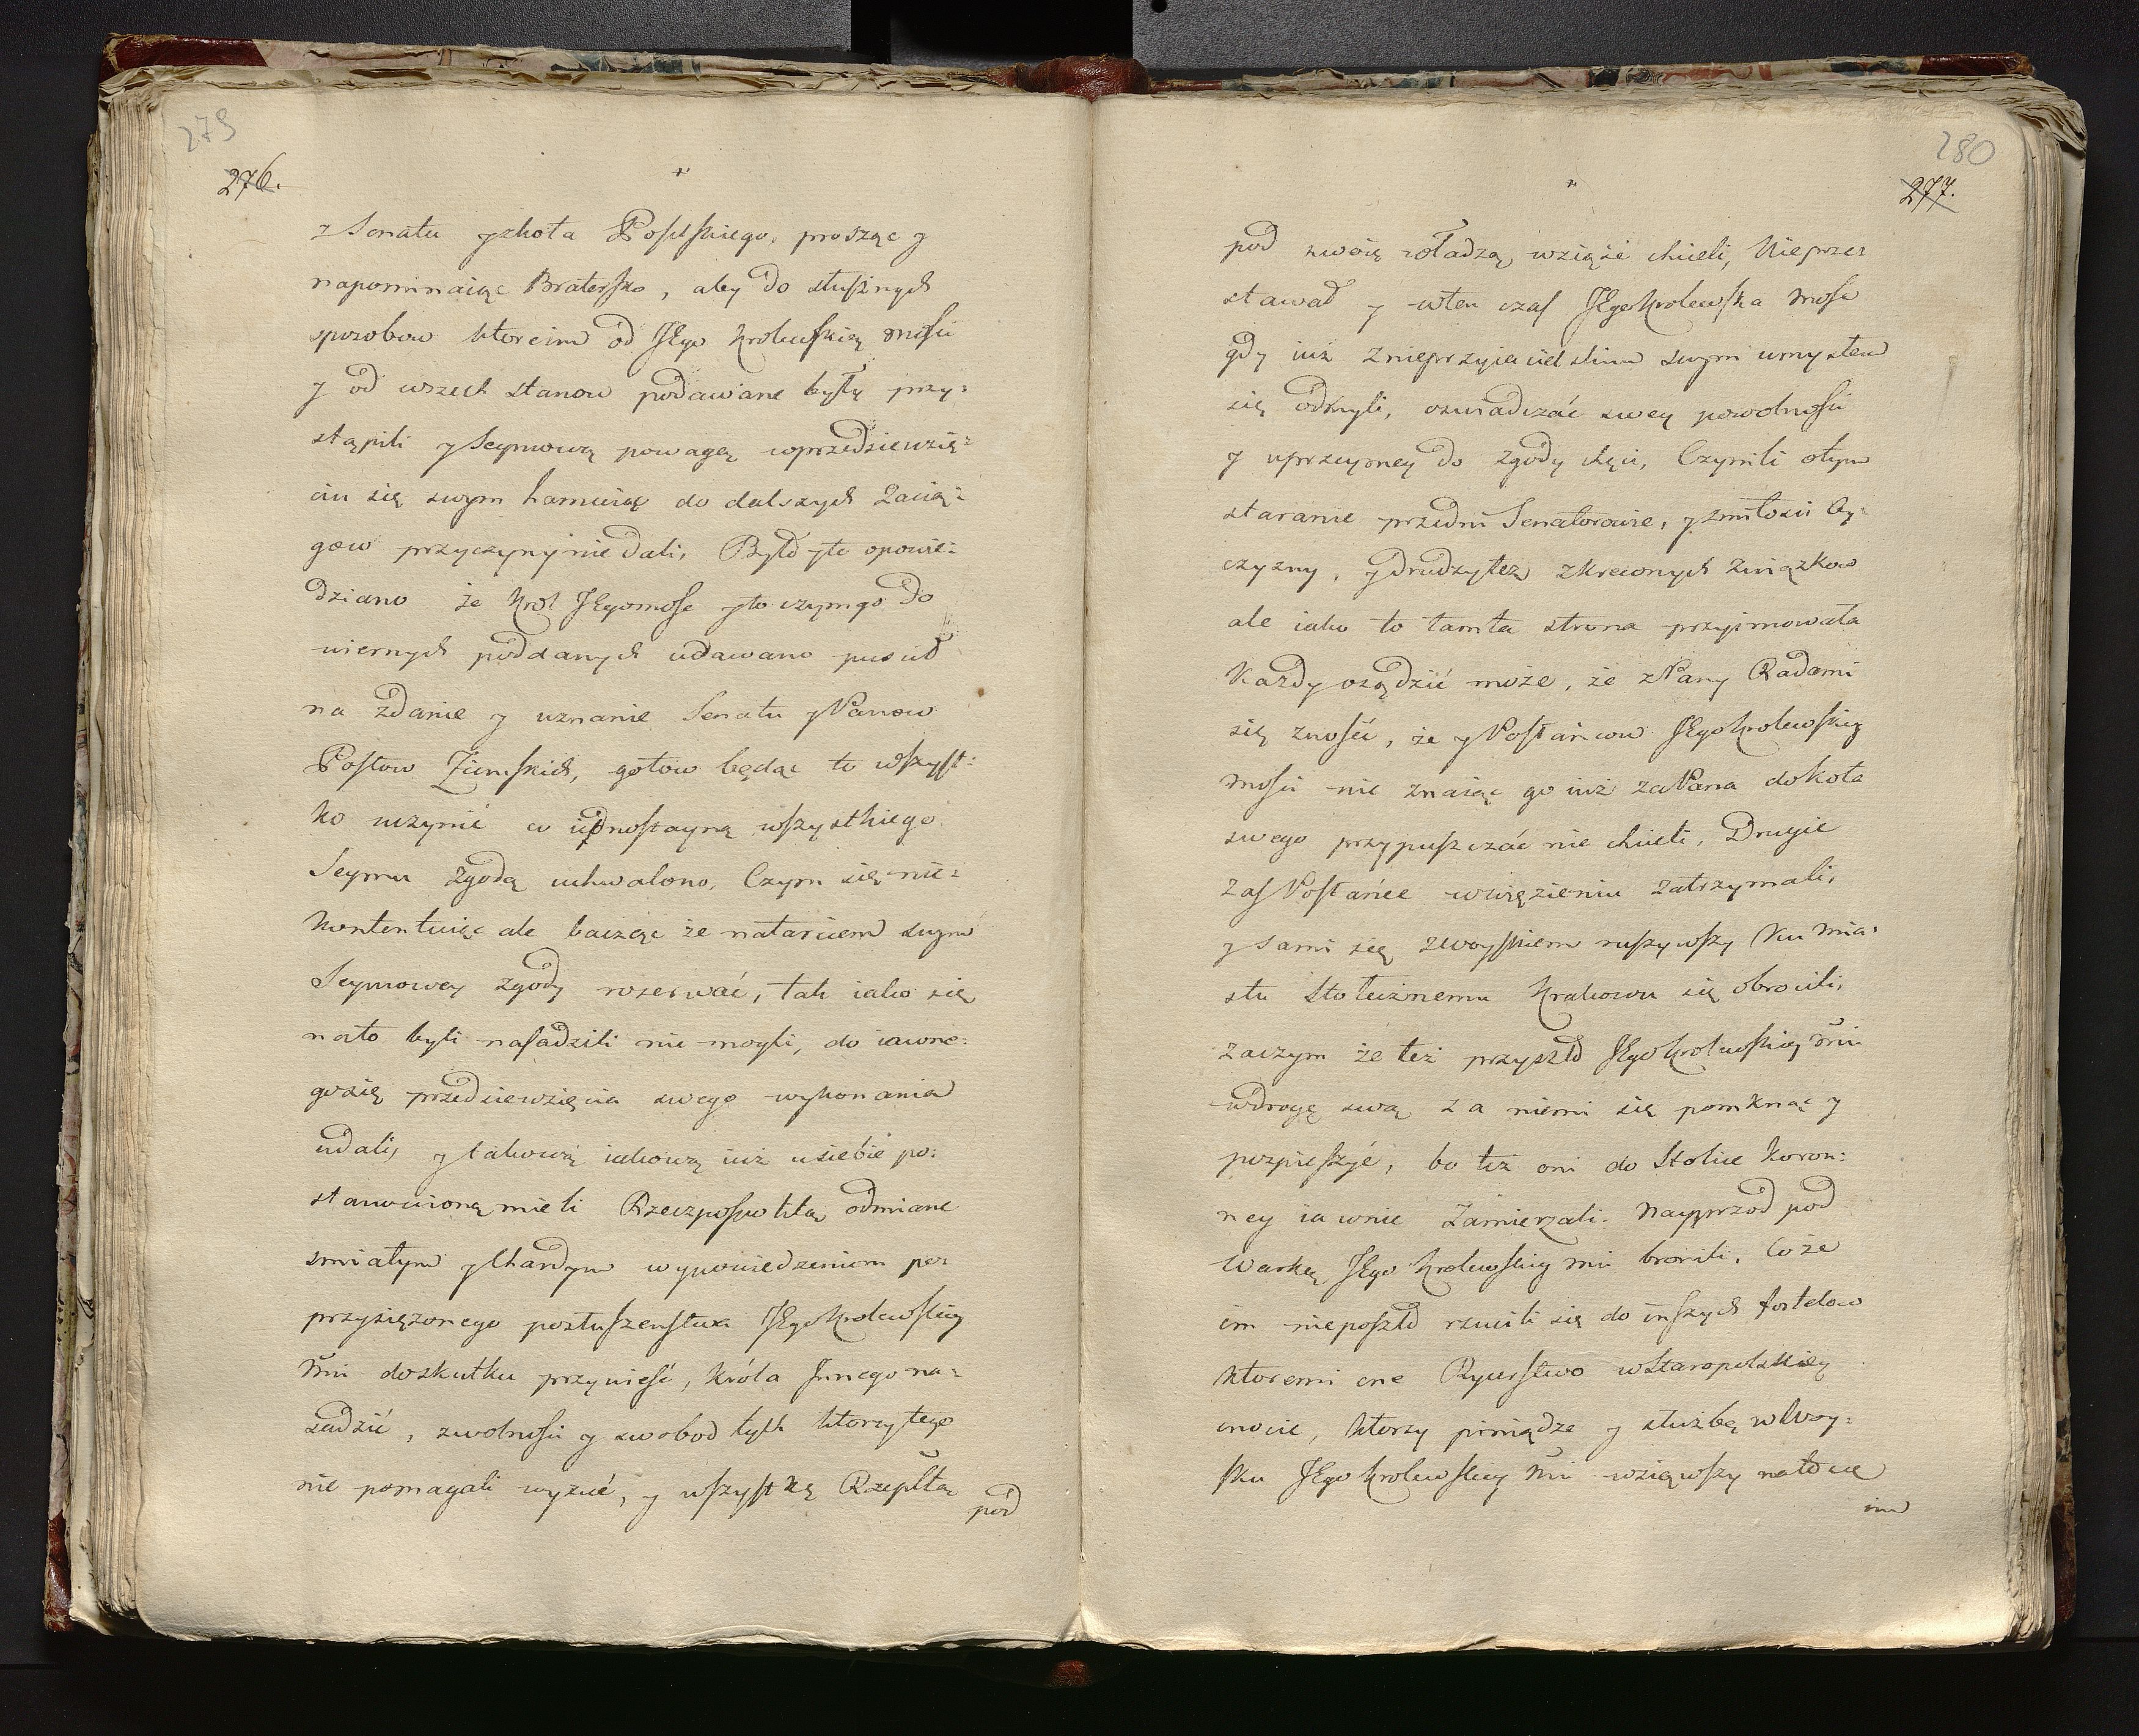 279
276.
z Senatu y zkoła Poselskiego, prosząc y
napominaiąc Bratersko, aby do słusznych
sposobow ktoreim od JEgo Krolewskiey Mości
y od wszech stanow podawane były przy=
stąpili y Seymową powagą wprzedsiewzię=
ciu się swym hamuiąc do dalszych Zacią=
gow przyczyny nie dali, Było y to opowie=
dziano że Krol JEgomość y to czym go do
wiernych poddanych udawano puscił
na zdanie y uznanie Senatu y Panow
Posłow Ziemskich, gotow będąc to wszyst=
ko uczynić co iednostayną wszystkiego
Seymu zgodą uchwalono, Czym się nie=
kontentuiąc ale bacząc że natarciem swym
Seymowey zgody rozerwać, tak iako się
nato byli nasadzili nie mogli, do iawne=
gosię przedsiewzięcia swego wykonania
udali, y takową iakową iuż u siebie po=
stanowioną mieli Rzeczpospolitą odmiane
smiałym y Chardym wypowiedzeniem po=
przysiężonego posłuszenstwa JEgo Krolewskiey
Mci doskutku przywieść, Króla Innego na=
sadzić, zwolności y swobod tych ktorzy tego
nie pomagali wyzuć, y wszystkę Rzepltą
pod
280
277.
pod swoię władzą wziąść chcieli, Nieprzes
stawał y wten czas JEgo Krolewska Mość
gdy iuż z nieprzyiacielskim swym umysłem
się odkryli, oswiadczać swey powolności
y uprzeymey do zgody chęci, Czynili otym
staranie przedni Senatorowie, y zmiłości Oy=
czyzny, y drudzy też zkrewnych Związkow
ale iako to tamta strona przyimowała
Każdy osądzić może, że z Pany Radami
się zność, że y Posłańcow JEgo Krolewskiey
Mości nie znaiąc go iuż za Pana do Koła
swego przypuszczać nie chcieli, Drugie
zaś Posłańce w więzieniu zatrzymali,
y sami się zwoyskiem ruszywszy Ku Mia=
stu Stołecznemu Krakowu się obrocili,
zaczym że też przyszło JEgo Krolewskiey Mci
w drogę swą za niemi się pomknąć y
pospieszyć, bo też oni do Stolice Koron=
ney iawnie Zamierzali. Nayprzod pod
Warką JEgo Krolewskiey Mci bronili, Co że
im nieposzło rzucili się do inszych fortelow
Ktoremi one Rycerstwo w Staropolskiey
cnocie, Ktorzy pieniądze y służbę w Woy=
sku JEgo Krolewskiey Mci wziąwszy na to się
im